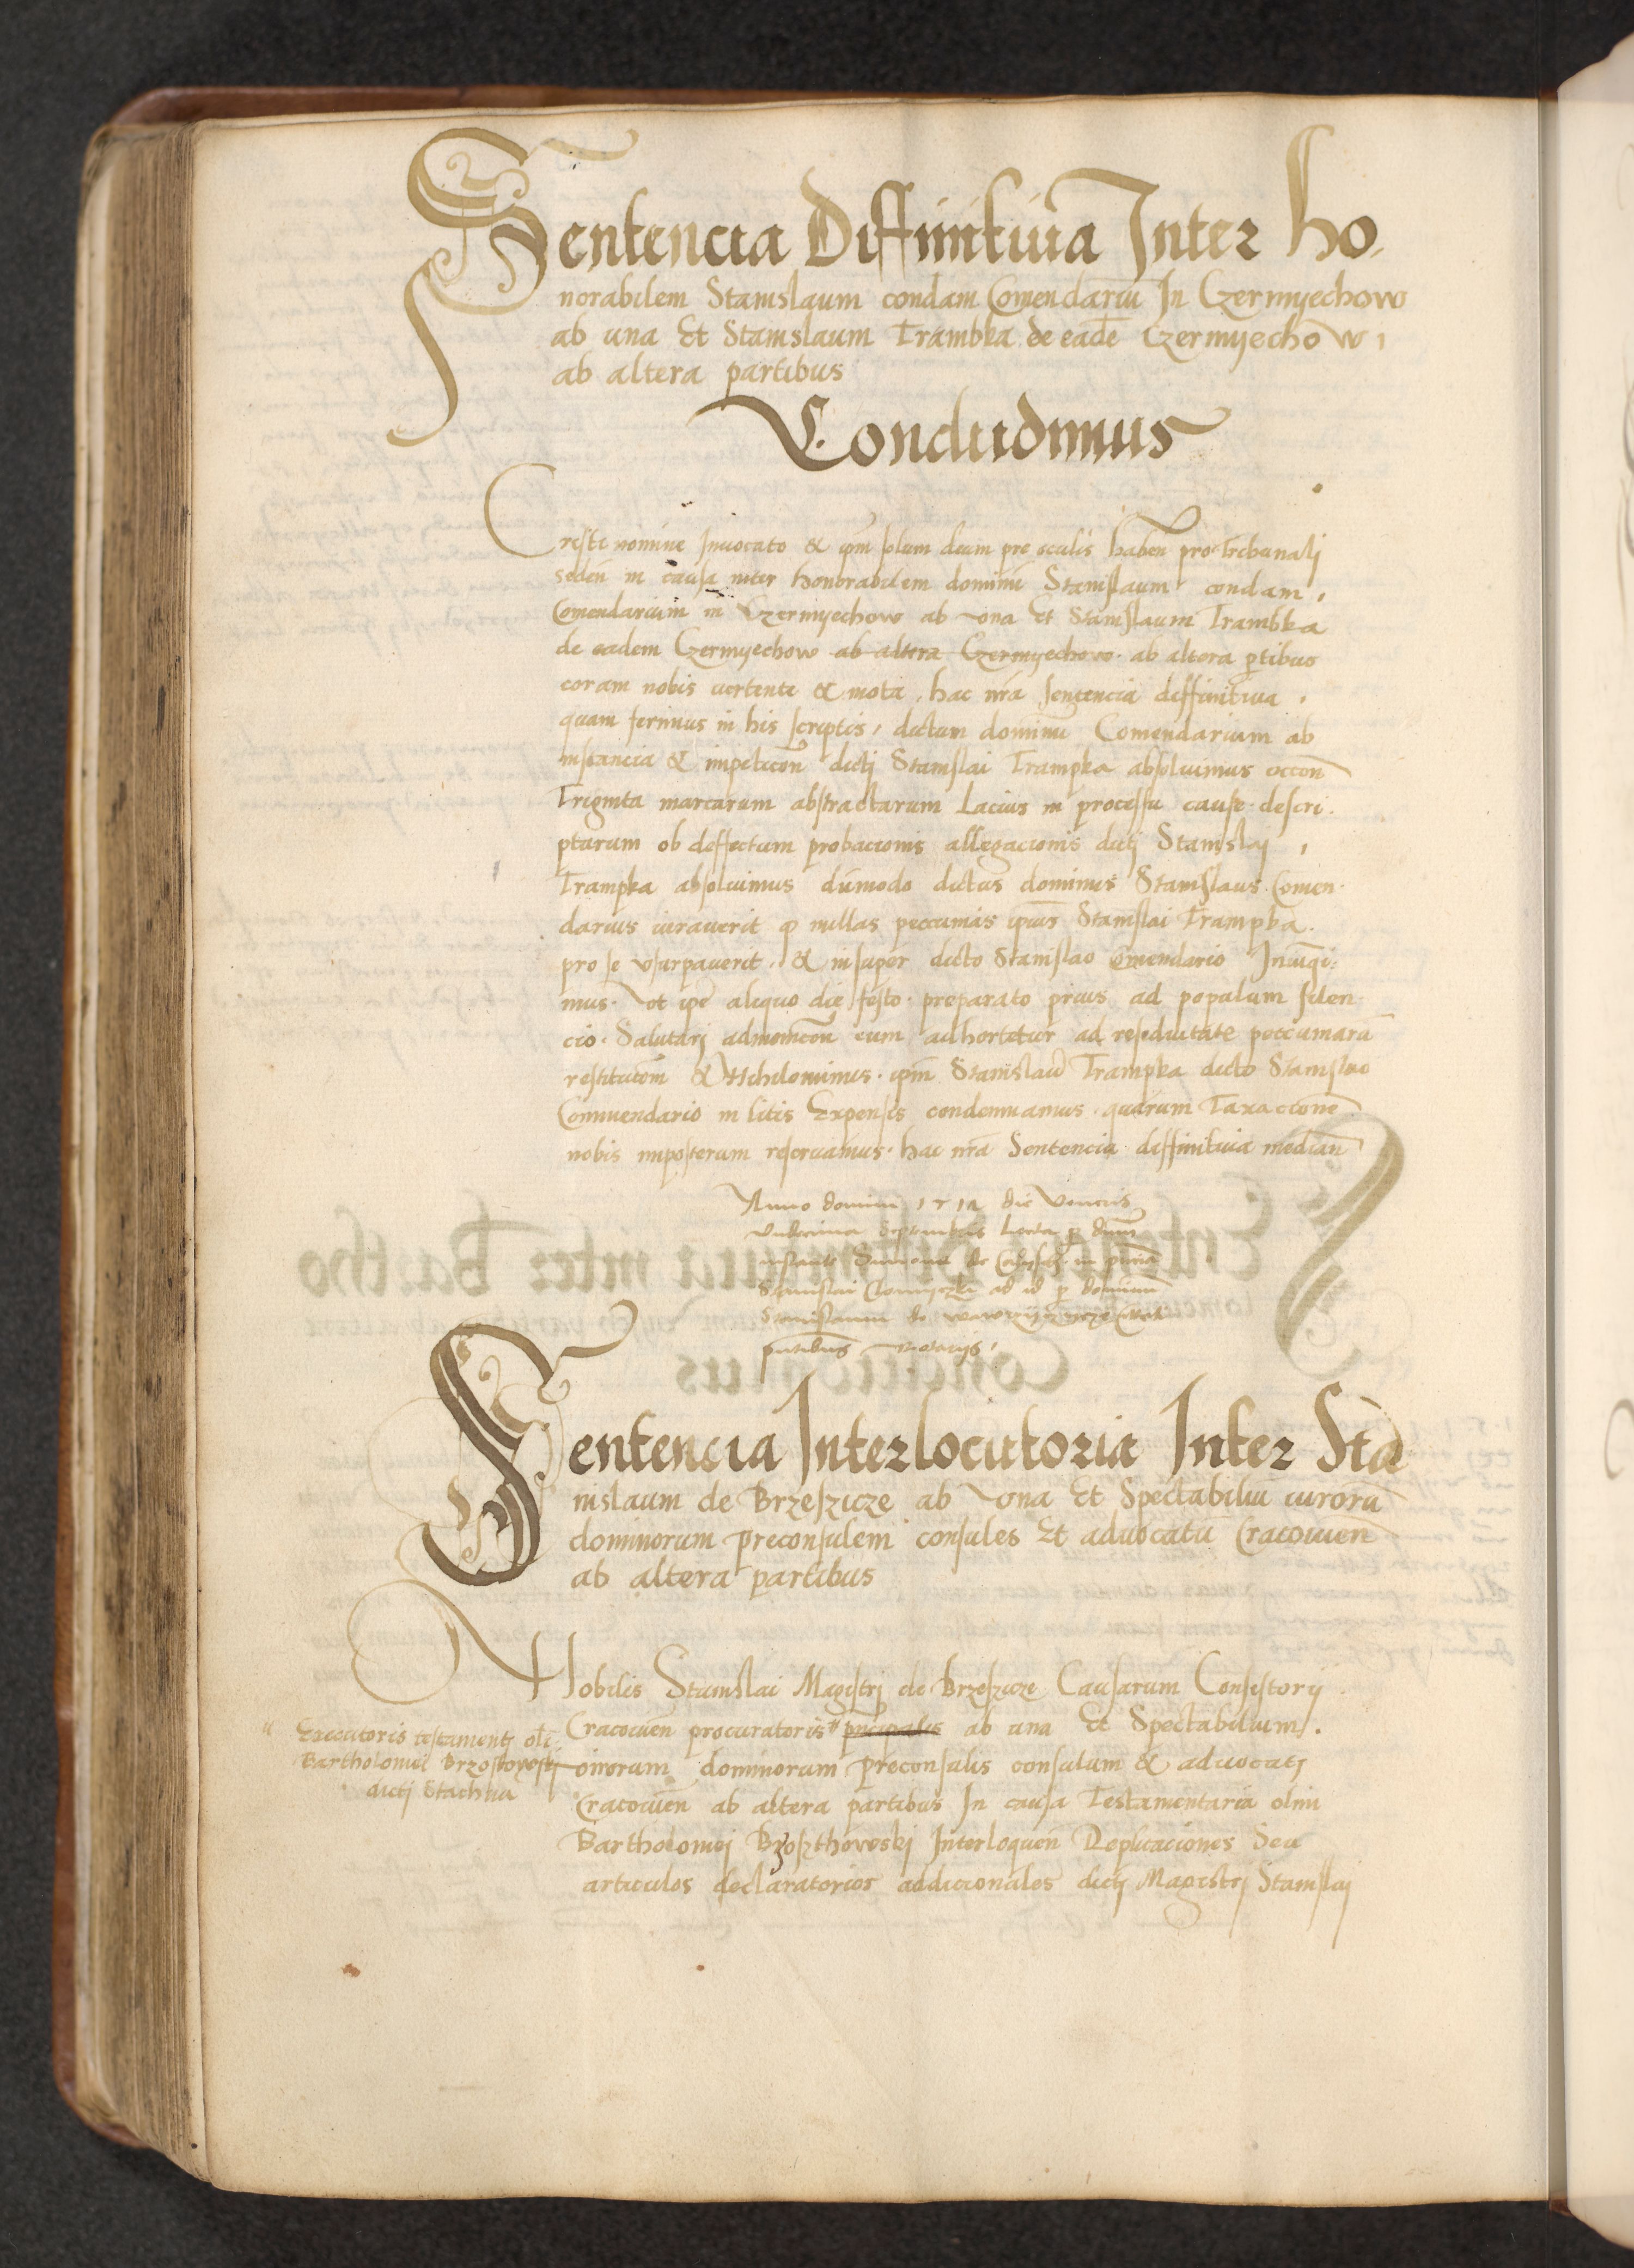 Sentencia Diffinitiva Inter ho,
norabilem Stanislaum condam Comendariū In Czermyechow
ab una Et Stanislaum Trambka de eadē Czermyechow,
ab altera partibus
Concludimus
Creste nomine Invocato & ipm̄ solum deum pre oculis haben̄ pro Tribunalj
seden̄ in causa inter honorabilem dominū Stanislaum condam,
Comendarium in Czermyechow ab vna Et Stanislaum Trambka
de eadem Czermyechow ab altera Czermyechow. ab altera ptibus
coram nobis vertente & mota, hac nr̄a sentencia diffinitiva.
quam ferimus in his scriptis, dictum dominū Comendarium ab
instancia & impeticōn dictj Stanislai Trampka absoluimus occōn
Triginta marcarum abstractarum Lacius in processu cause descri.
ptarum ob deffectum probacionis allegacionis dictj Stanislaj,
Trampka absoluimus dūmodo dictus dominus Stanislaus Comen.
darius iuraverit q nullas peccunias ipius Stanislai Trampka.
pro se vsurpaverit. & insuper dicto Stanislao Cōmendario Iniūgi:
mus. Vt ipe aliquo die festo. preparato prius ad populum silen
cio. Salutarj admonicōn eum adhortetur ad reseduitate peccuniarū
restitucōm & Nihilominus. ipm̄ Stanislaū Trampka dicto Stanislao
Commendario in litis Expensis condemnamus. quarum Taxacionē
nobis inposterum reservamus. hac nr̄a Sentencia diffinitiva median̄
Anno domini 1512 die Veneris
Vndecima Septembris Lecta p dnm̄
instante Simone de in pn̄cia
Stanislai ad id p dominū
Stanislaum de
pntibus Notarijs,
Sentencia Interlocutoria Inter Sta
nislaum de Brzeszicze ab Vna Et Spectabiliū virorū
dominorum preconsulem consules Et aduocatū Cracovien̄
ab altera partibus
Nobilis Stanislai Magistrj de Brzeszicze Causarum Consistorij
Cracovien̄ procuratoris" principalis ab una Et Spectabilium.
" Executoris testamentj oli
Bartholomei Brzostowskj
dictj Stachna
virorum dominorum preconsulis consulum & advocatj
Cracovien̄ ab altera partibus In causa Testamentaria olim
Bartholomej Brzoszthowskj Interloquen̄ Replicaciones Seu
articulos declaratorios addicionales dictj Magistrj Stanislaj